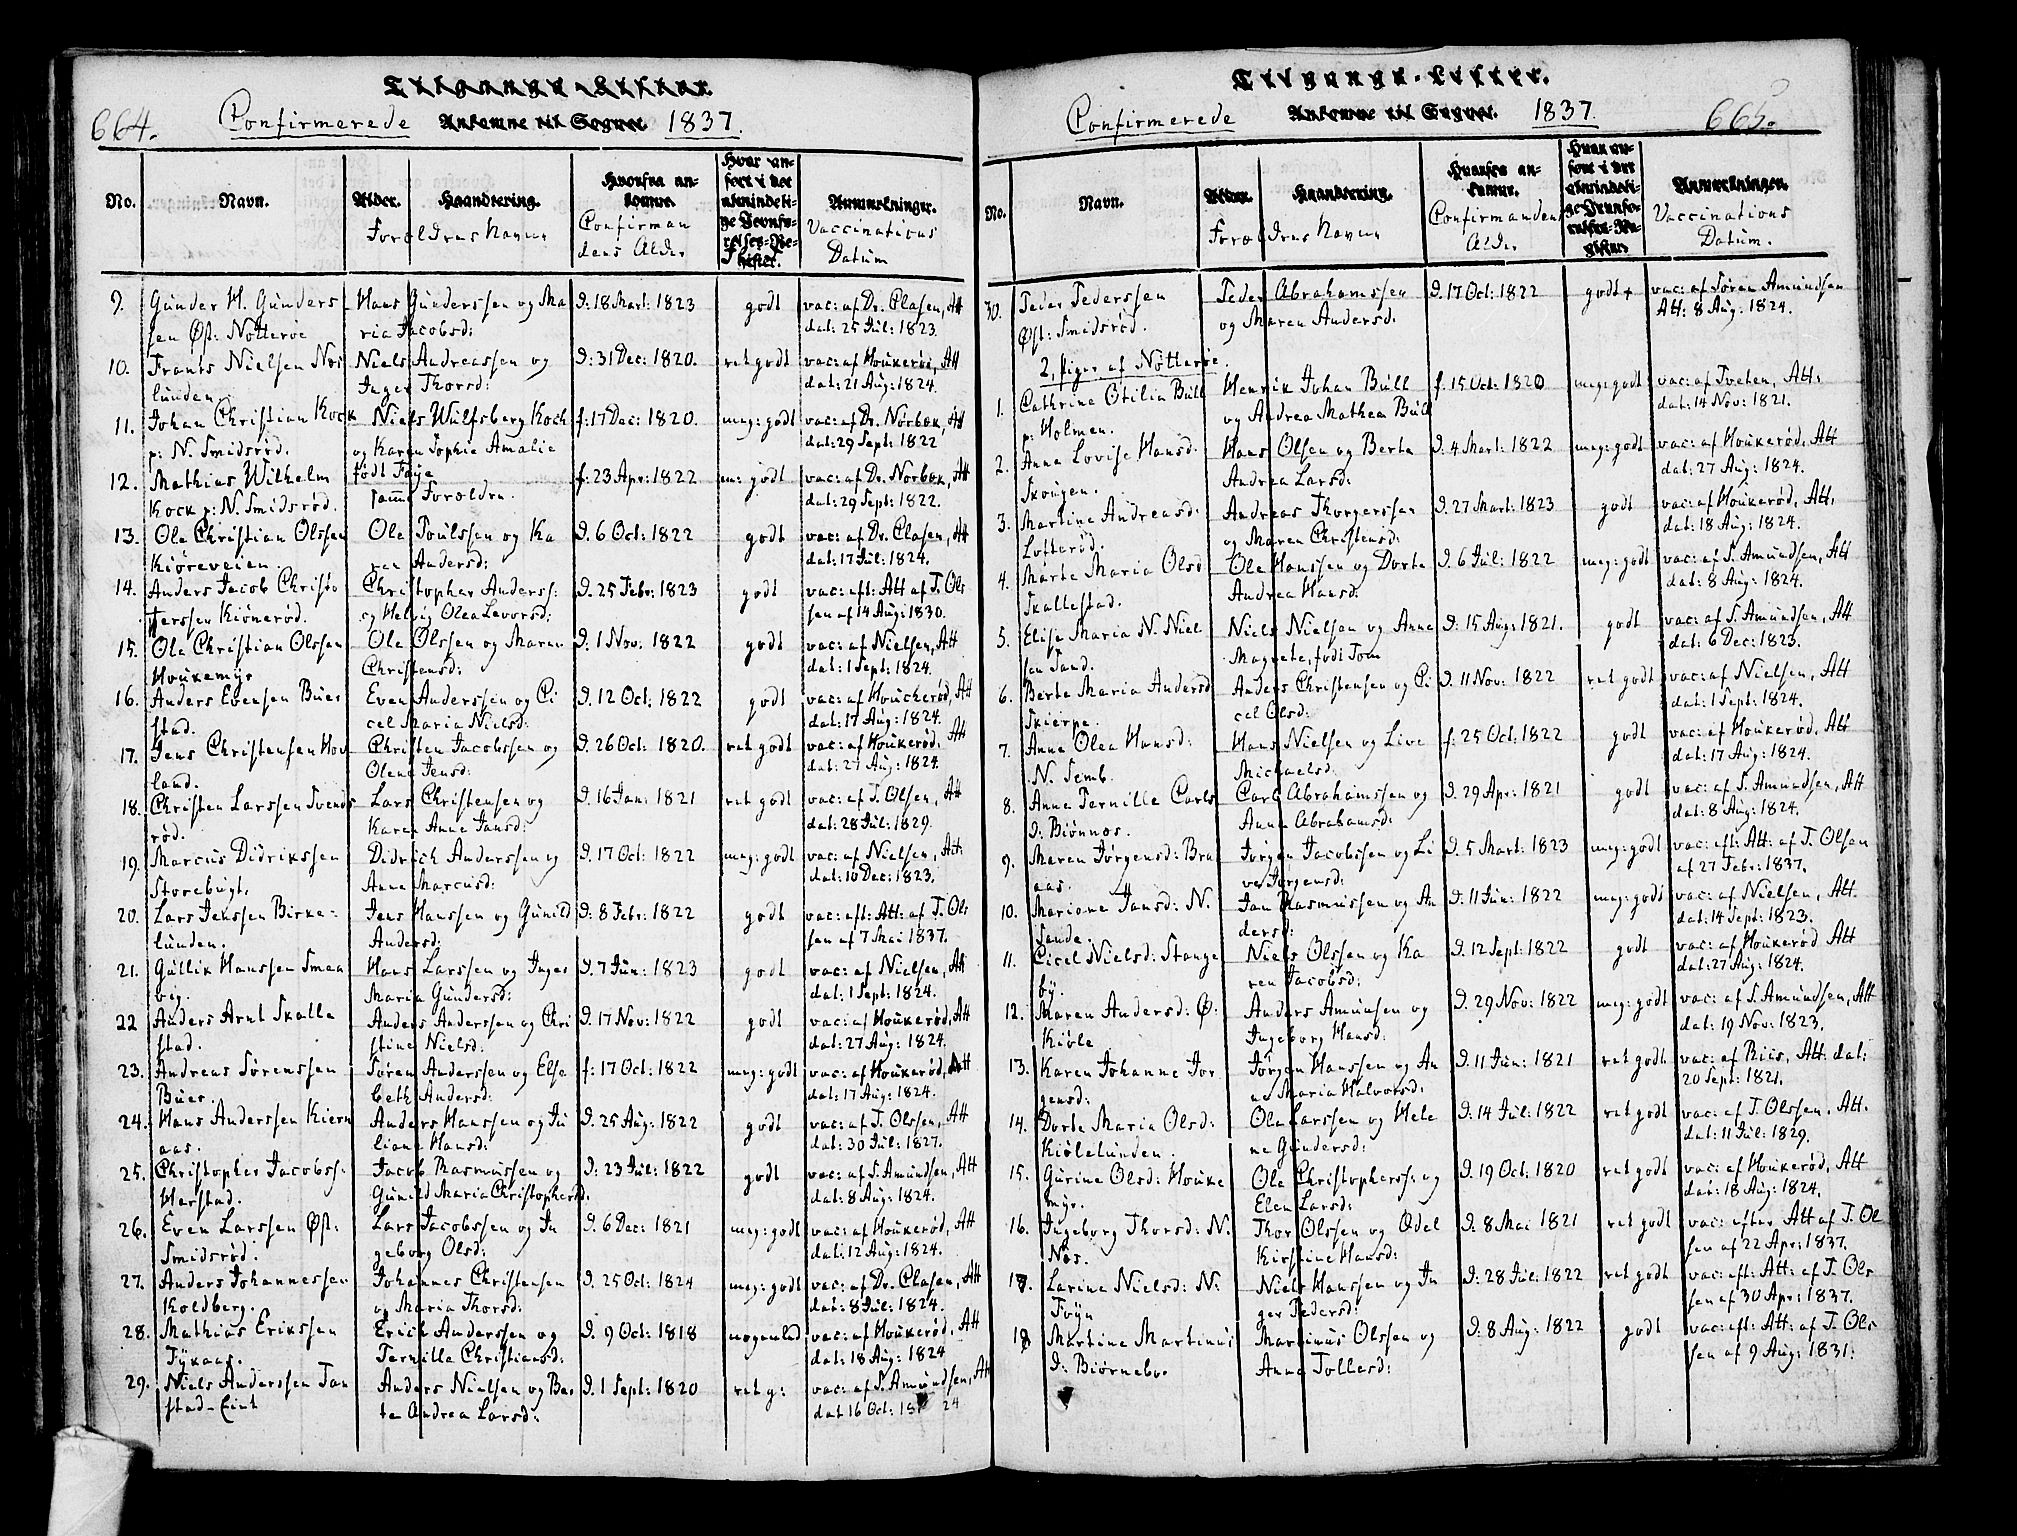 Tilgangs-Lister.
664. Confirmerede Ankomne til Sognet 1837.
No. Navn. Alder. Haandtering. Hvorfra ankomne. Hvor anført i det almindelige Jevnførelses-Register. Anmærkninger.
Forældres Navne Confirmandens Alder Vaccinations Datum
9. Gunder H. Gunders Hans Gunderssen og Ma D. 18 Mart: 1823 godt vac: af Dr. Clasen, Att
sen Øst: Nötteröe ria Jacobsd: dat: 25 Jul: 1823.
10. Frants Nielsen Næs Niels Andreassen og D: 31 Dec: 1820. ret godt vac: af Houkerøi, Att
lunden. Inger Thorsd: dat: 21 Aug: 1824.
11. Johan Christian Kock Niels Wulfsberg Koch f: 17 Dec: 1820. meg: godt vac: af Dr. Norbæk, Att
p: N. Smidsrød. og Karen Sophie Amalie dat: 29 Sept: 1822
født Faye
12. Mathias Wilhelm f: 23 Apr: 1822 m: godt vac: af Dr. Norbæk, Att
Kock p: N. Smidsrød. samme Forældre. dat: 29 Sept: 1822.
13. Ole Christian Olssen Ole Poulssen og Ka D. 6 Oct: 1822 godt vac: af Dr. Clasen, Att
Kiøreveien. ren Andersd: dat: 17 Jul: 1824.
14. Anders Jacob Christo Christopher Anderss: D. 25 Febr: 1823 godt vac: eft: Att af J. Ols
ferssen Kiønerød. og Helvig Olea Levorsd: sen af 14 Aug: 1830.
15. Ole Christian Olssen Ole Olssen og Maren D. 1 Nov: 1822 godt vac: af Nielsen, Att
Houkemyr Christensd: dat: 1 Sept: 1824.
16. Anders Evensen Buer Even Anderssen og Ci D. 12 Oct: 1822 godt vac: af Houckerød, Att
stad. cel Maria Nielsd: dat: 17 Aug: 1824.
17. Jens Christensen Hov Christen Jacobssen og D. 26 Oct: 1820. ret godt vac: af Houkerød, Att
land. Olene Jensd: dat: 27 Aug: 1824.
18. Christen Larssen Svends Lars Christensen og D. 16 Jan: 1821 ret godt vac: af J. Olsen, Att
rød. Karen Anne Jansd: dat: 28 Jul: 1829.
19. Marcus Didrikssen Didrich Anderssen og D. 17 Oct: 1822 meg: godt vac: af Nielsen, Att:
Storebugt. Anne Marcusd: dat: 10 Dec: 1823.
20. Lars Jenssen Birke- Jens Hanssen og Gunild D. 8 Febr: 1822 godt vac: eft: Att: af J. Ols
lunden. Andersd: sen af 7 Mai 1837.
21. Gullik Hanssen Smaa Hans Larssen og Inger D. 7 Jun: 1823 godt vac: af Nielsen, Att
vig. Maria Gundersd: dat: 1 Sept: 1824.
22 Anders Arnt Skalle Anders Anderssen og Chri D. 17 Nov: 1822 godt vac: af Houkerød, Att
stad. stine Nielsd: dat: 27 Aug: 1824.
23. Andreas Sørenssen Søren Anderssen og Else f: 17 Oct: 1822 meg: godt vac: af Houkerød, Att
Buer. beth Andersd: dat: 17 Aug: 1824.
24. Hans Anderssen Kiern Anders Hanssen og Ju D. 25 Aug: 1822 godt vac: af J. Olssen, Att
aas. liane Hansd: dat: 30 Jul: 1827.
25. Christopher Jacobss: Jacob Rasmussen og D: 23 Jul: 1822 godt vac: af S. Amundsen, Att
Herstad. Gunild Maria Christophersd. dat: 8 Aug: 1824.
26. Even Larssen Øst: Lars Jacobssen og In D. 6 Dec: 1821 meg: godt vac: af Houkerød, Att
Smidsrød. geborg Olsd: dat: 12 Aug: 1824.
27. Anders Johannessen Johannes Christensen D. 25 Oct: 1824 meg: godt vac: af Dr. Clasen, Att
Koldberg. og Maria Thorsd: dat: 8 Jul: 1824.
28. Mathias Erikssen Erich Anderssen og D. 9 Oct: 1818 nogenled vac: af Houkerød, Att
Fykaas. Pernille Christiansd: dat: 18 Aug: 1824
29. Niels Anderssen Jan Anders Nielsen og Ber D. 1 Sept: 1820 ret g: vac: af S. Amundsen, Att
stad-Eiet te Andrea Larsd: dat 16 Oct: 18 24
Tilgangs-Lister.
Confirmerede Ankomne til Sognet. 1837. 665.
No. Navn. Alder. Haandtering. Hvorfra ankomne. Hvor anført i det almindelige Jevnførelses-Register Anmærkninger.
Forældres Navne Confirmandens Alder Vaccinations Datum.
30. Peder Pederssen Peder Abrahamssen D. 17 Oct: 1822 godt + vac: af Søren Amundsen
Øst: Smidsrød. og Maren Andersd: Att: 8 Aug: 1824.
2, Piger af Nötteröe.
1. Cathrine Otilia Bull Henrik Johan Bull f. 15 Oct: 1820 meg: godt vac: af Tveten, Att:
p: Holmen. og Andrea Mathea Bull dat: 14 Nov: 1821.
2. Anne Lovise Hansd: Hans Olsen og Berte D. 4 Mart: 1822 meg: godt vac: af Houkerød, Att
Skougen. Andrea Larsd: dat: 27 Aug: 1824.
3. Martine Andreasd: Andreas Thorgerssen D. 27 Mart: 1823 godt vac: af Houkerød, Att:
Lofterød. og Maren Christensd: dat: 18 Aug: 1824.
4. Marte Maria Olsd Ole Hanssen og Dorte D. 6 Jul: 1822 meg: godt vac: af S. Amundsen, Att
Skallestad. Andrea Hansd: dat: 8 Aug: 1824.
5. Elise Maria N. Niel Niels Nielsen og Anne D: 15 Aug: 1821. godt vac: af S. Amundsen, Att
sen Sand. Magrete, født Tom dat: 6 Dec: 1823.
6. Berte Maria Andersd Anders Christensen og Ci D. 11 Nov: 1822 ret godt vac: af Nielsen, Att
Skierpe. cel Olsd: dat: 1 Sept: 1824.
7. Anne Olea Hansd: Hans Nielsen og Live f: 25 Oct: 1822 godt vac: af Houkerød, Att
N. Semb. Michaelsd: dat: 17 Aug: 1824.
8. Anne Pernille Carls Carl Abrahamssen og D. 29 Apr: 1821 godt vac: af S. Amundsen, Att
D: Biønnes. Anne Abrahamsd: dat: 8 Aug: 1824.
9. Maren Jørgensd: Bra Jørgen Jacobssen og Li D. 5 Mart: 1823 meg: godt vac: eft: Att: af J. Olsen
aas. ve Jørgensd: af 27 Febr: 1837.
10. Mariane Jansd: N. Jan Rasmussen og An D. 11 Jun: 1822 meg: godt vac: af Nielsen, Att.
Sande. dersd: dat: 14 Sept: 1823.
11. Cicel Nielsd: Stange Niels Olssen og Ka D. 12 Sept: 1822 godt vac: af Houkerød Att
by. ren Jacobsd: dat: 27 Aug: 1824.
12. Maren Andersd: Ø. Anders Amunsen og D. 29 Nov: 1822 meg: godt vac: af S. Amundsen, Att
Kiøle Ingeborg Hansd: dat: 19 Nov: 1823.
13. Karen Johanne Jor Jørgen Hanssen og An D. 11 Jun: 1821 ret godt vac: af Riis, Att: dat:
gensd: ne Maria Halvorsd: 20 Sept: 1821.
14. Dorte Maria Olsd: Ole Larssen og Hele D. 14 Jul: 1822 ret godt vac: af J. Olssen. Att.
Kiølelunden. ne Gundersd: dat: 11 Jul: 1829.
15. Gurine Olsd: Houke Ole Christopherss: og D. 19 Oct: 1820 ret godt vac: af Houkerød, Att
myr. Elen Larsd: dat: 18 Aug: 1824.
16. Ingeborg Thorsd: N. Thor Olssen og Odel D. 8 Mai 1821 ret godt vac: efter Att af J. Ol
Næs. Kirstine Hansd: sen af 22 Apr: 1837.
17. Larine Nielsd: N. Niels Hanssen og In D: 28 Jul: 1822 ret godt vac: eft: Att: af J. Ols
Føyn ger Pedersd: sen af 30 Apr: 1837.
18 Martine Martinus Martinus Olssen og D: 8 Aug: 1822 godt vac: eft: Att: af J. Ols
D: Biørnebo. Anne Tollefsd: sen af 9 Aug: 1831.